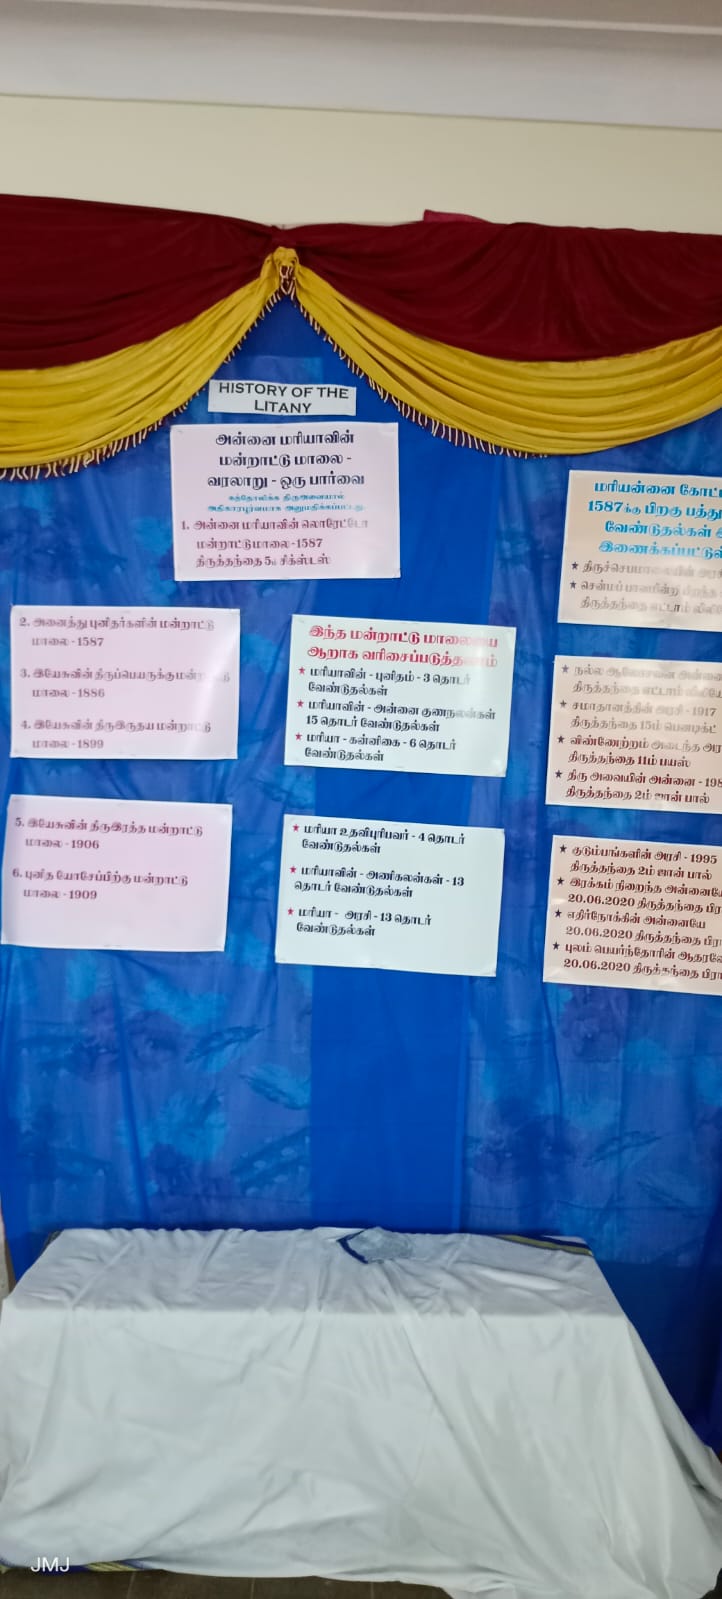 HISTORY OF THE
LITANY
அன்னை மரியாவின்
மன்றாட்டு மாலை -
வரலாறு - ஒரு பார்வை
கத்தோலிக்க திருஅவையால்
அதிகாரபூர்வமாக அனுமதிக்கப்பட்டது
1. அன்னை மரியாவின் லொரேட்டோ
மன்றாட்டுமாலை -1587
திருத்தந்தை 5ம் சிக்ஸ்டஸ்
2. அனைத்து புனிதர்களின் மன்றாட்டு
மாலை - 1587
3. இயேசுவின் திருப்பெயருக்கு
மாலை - 1886
4. இயேசுவின் திருஇருதய மன்றாட்டு
மாலை - 1899
5. இயேசுவின் திருஇரத்த மன்றாட்டு
மாலை - 1906
6. புனித யோசேப்பிற்கு மன்றாட்டு
மாலை - 1909
இந்த மன்றாட்டு மாலையை
ஆறாக வரிசைப்படுத்தலாம்
★ மரியாவின் - புனிதம் - 3 தொடர்
வேண்டுதல்கள்
★ மரியாவின் - அன்னை குணநலன்கள்
15 தொடர் வேண்டுதல்கள்
★ மரியா - கன்னிகை - 6 தொடர்
வேண்டுதல்கள்
★ மரியா உதவிபுரிபவர் - 4 தொடர்
வேண்டுதல்கள்
★ மரியாவின் - அணிகலன்கள் - 13
தொடர் வேண்டுதல்கள்
★ மரியா - அரசி - 13 தொடர்
வேண்டுதல்கள்
மரியன்னை
1587க்கு பிறகு
வேண்டுதல்கள்
இணைக்கப்பட்டுள்
★ திருச்செபமாலையின்
★ சென்மப் பாவமின்றி பிறந்த
திருத்தந்தை எட்டாம்
★ நல்ல ஆலோசனை
திருத்தந்தை எட்டாம்
★ சமாதானத்தின் அரசி - 1917
திருத்தந்தை 15ம் பெனடிக்ட்
★ விண்ணேற்றம் அடைந்த
திருத்தந்தை 11ம் பயஸ்
★ திரு அவையின் அன்னை - 198
திருத்தந்தை 2ம் ஜான் பால்
★ குடும்பங்களின் அரசி - 1995
திருத்தந்தை 2ம் ஜான் பால்
★ இரக்கம் நிறைந்த
20.06.2020 திருத்தந்தை
★ எதிர்நோக்கின் அன்னையே
20.06.2020 திருத்தந்தை
★ புலம் பெயர்ந்தோரின்
20.06.2020 திருத்தந்தை
JMJ